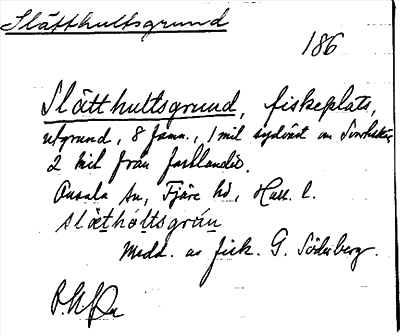 Slätthultsgrund
186
Slätthultsgrund, fiskeplats,
utgrund, 8 famn., 1 mil sydväst om
2 mil från fastlandet.
Onsala sn, Fjäre hd, Hall. l.
slæthòltsgrún
Medd. av fisk. G. Söderberg.